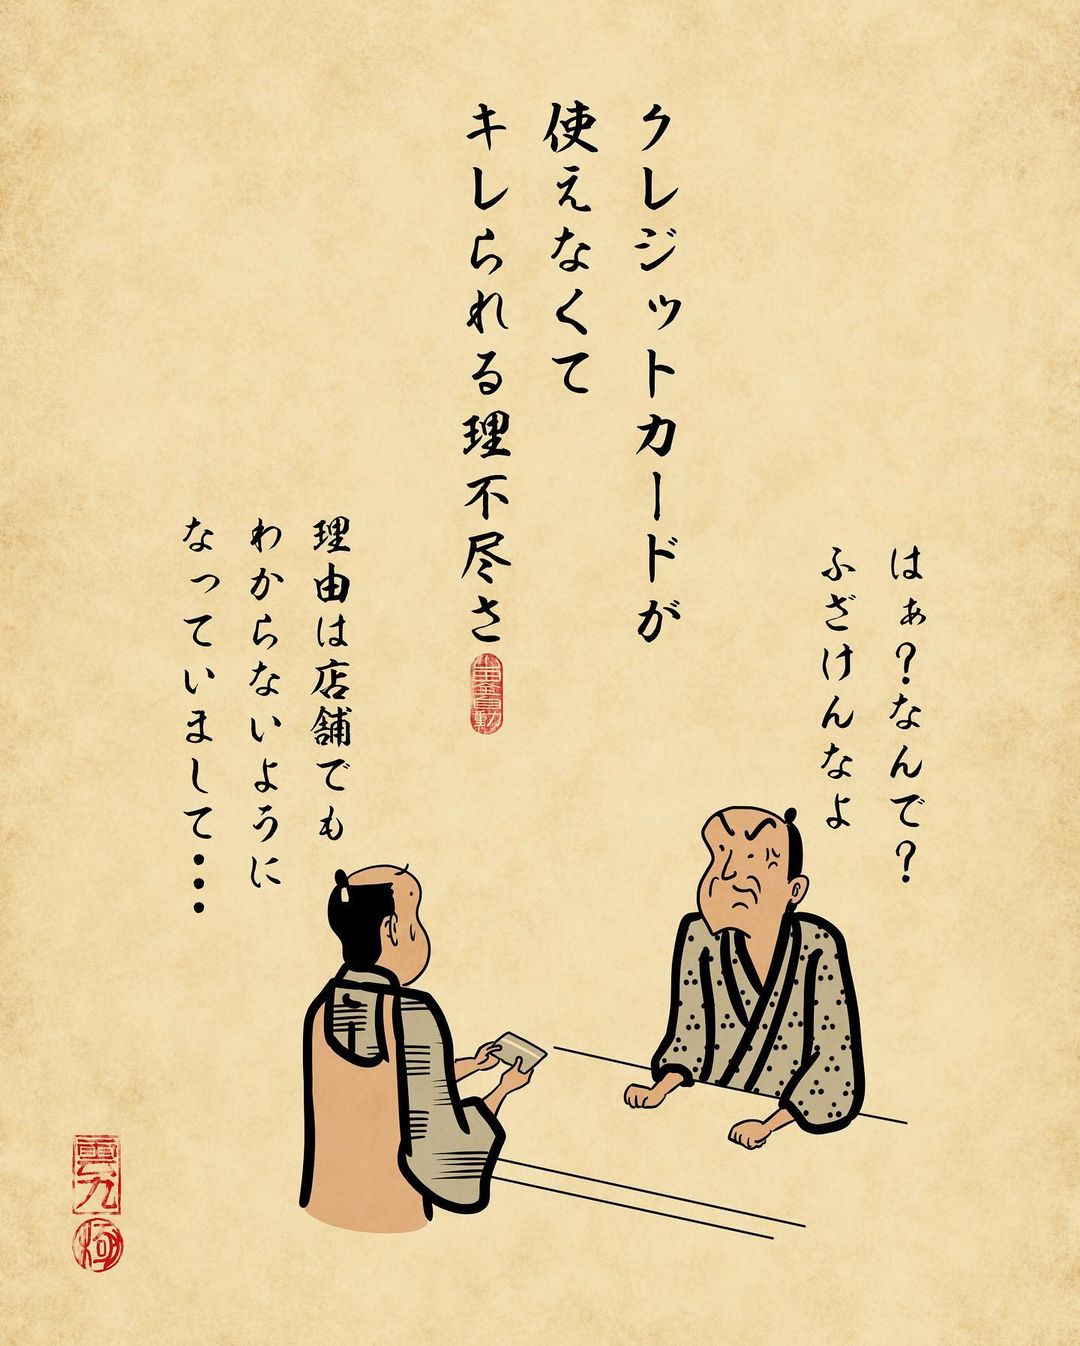 クレジットカードが
使えなくて
キレられる理不尽さ
はぁ？なんで？
ふざけんなよ
理由は店舗でも
わからないように
なっていまして・・・
雲九
極